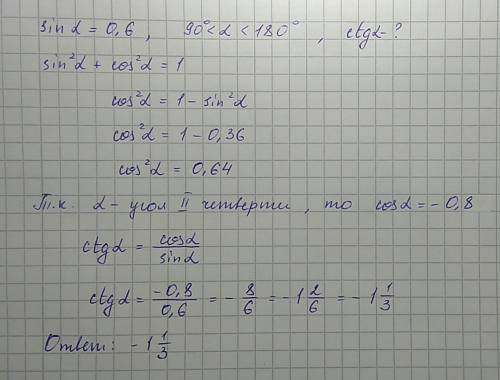 sin α = 0,6 , 90° < α < 180° , ctgα - ?
sin²α + cos²α = 1
cos²α = 1 - sin²α
cos²α = 1 - 0,36
cos²α = 0,64
Т.к. α - угол II четверти , то cosα = - 0,8
ctgα = cosα/sinα
ctgα = -0,8/0,6 = - 8/6 = -1 2/6 = - 1 1/3
Ответ: - 1 1/3